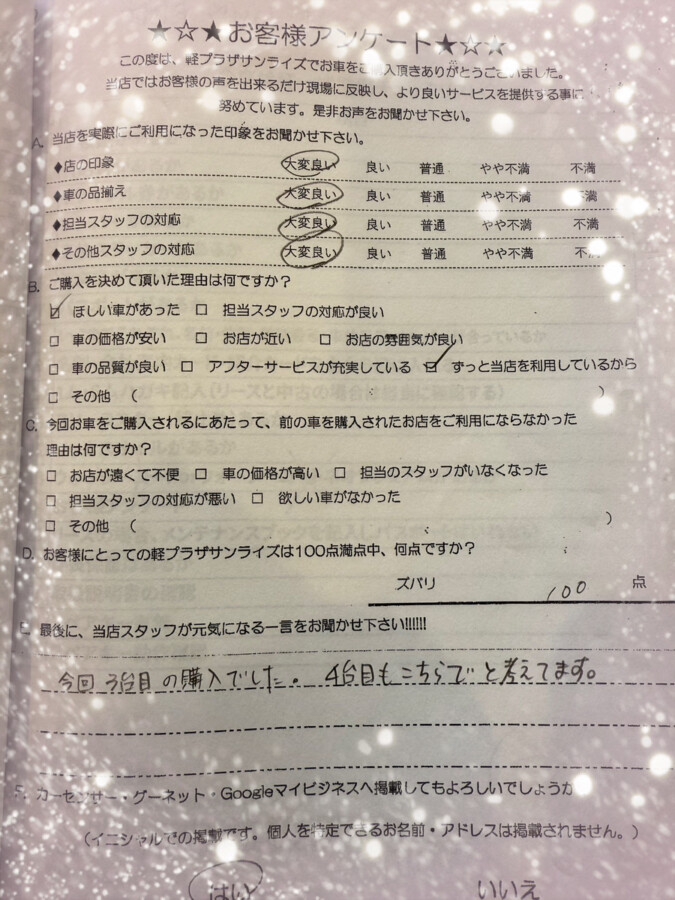 ★☆★お客様アンケート★☆☆
この度は、軽プラザサンライズでお車をご購入頂きありがとうございました。
当店ではお客様の声を出来るだけ現場に反映し、より良いサービスを提供する事に
努めています。是非お声をお聞かせ下さい。
A. 当店を実際にご利用になった印象をお聞かせ下さい。
◆店の印象 大変良い 良い 普通 やや不満 不満
◆車の品揃え 大変良い 良い 普通 やや不満 不満
◆担当スタッフの対応 大変良い 良い 普通 やや不満 不満
◆その他スタッフの対応 大変良い 良い 普通 やや不満 不
B. ご購入を決めて頂いた理由は何ですか？
☑ ほしい車があった □ 担当スタッフの対応が良い
□ 車の価格が安い □ お店が近い □ お店の雰囲気が良い
□ 車の品質が良い □ アフターサービスが充実している ☑ ずっと当店を利用しているから
□ その他 （ ）
C. 今回お車をご購入されるにあたって、前の車を購入されたお店をご利用にならなかった
理由は何ですか？
□ お店が遠くて不便 □ 車の価格が高い □ 担当のスタッフがいなくなった
□ 担当スタッフの対応が悪い □ 欲しい車がなかった
□ その他 （ ）
D. お客様にとっての軽プラザサンライズは100点満点中、何点ですか？
ズバリ 100 点
E. 最後に、当店スタッフが元気になる一言をお聞かせ下さい!!!!!!
今回3台目の購入でした。4台目もこちらでと考えてます。
F. カーセンサー・グーネット・Googleマイビジネスへ掲載してもよろしいでしょうか
（イニシャルでの掲載です。個人を特定できるお名前・アドレスは掲載されません。）
はい いいえ